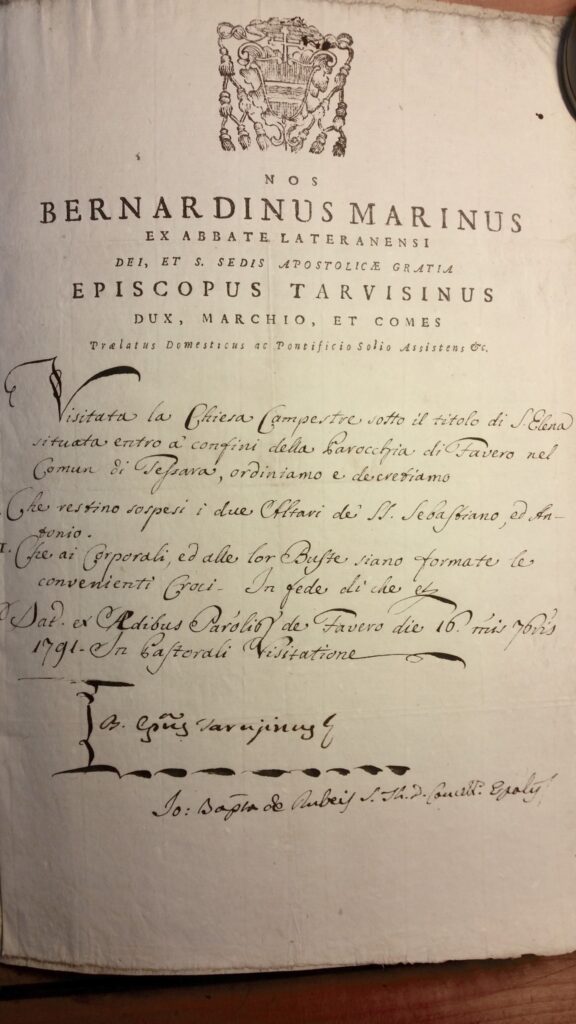 NOS
BERNARDINUS MARINUS
EX ABBATE LATERANENSI
DEI, ET S. SEDIS APOSTOLICÆ GRATIA
EPISCOPUS TARVISINUS
DUX, MARCHIO, ET COMES
Prælatus Domesticus ac Pontificio Solio Assistens &c.
Visitata la Chiesa Campestre sotto il titolo di S. Elena
situata entro a' confini della Parocchia di Favero nel
Comun di Tessara, ordiniamo e decretiamo
Che restino sospesi i due Altari de' SS. Sebastiano, ed An-
tonio.
Che ai Corporali, ed alle lor Buste siano formate le
convenienti Croci. In fede di che et
Dat. ex Ædibus Par'olibq de Favero die 16. mis 7bris
1791. In Pastorali Visitatione
B. Epus Tarvisinus
Jo: Bapta de Rubeis S. Th. D. Epalis